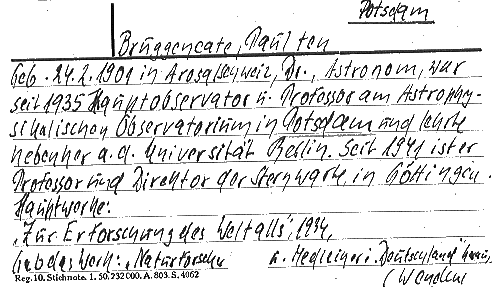 Potsdam
Brüggencate, Paul ten
Geb. 24.2.1901 in Arosa/Schweiz, Dr., Astronom, war
seit 1935 Hauptobservator u. Professor am Astrophy-
sikalischen Observatorium in Potsdam und lehrte
nebenher a.d. Universität Berlin. Seit 1941 ist er
Professor und Direktor der Sternwarte in Göttingen.
Hauptwerke:
„Zur Erforschung des Weltalls", 1934,
Gab das Werk: „Naturforscher u. Mediziner i. Deutschland" heraus,
Reg. 10. Stichnote. 1. 50. 232 000. A. 803. S. 4062